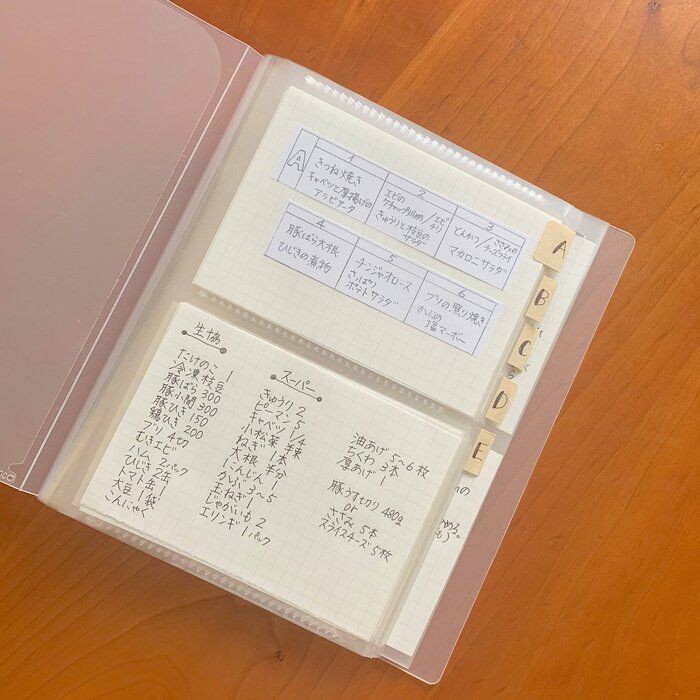 A
1
きつね焼き
キャベツと厚揚げの
アラビアータ
2
エビの
ケチャップ炒め/エビチリ
きゅうりと枝豆の
サラダ
3
とんかつ/ささみの
チーズフライ
マカロニサラダ
4
豚ばら大根
ひじきの煮物
5
チンジャオロース
さっぱり
ポテトサラダ
6
ブリの照り焼き
かぶの
塩マーボー
A
B
C
D
E
生協
たけのこ 1
冷凍枝豆
豚ばら 300
豚小間 300
豚ひき 150
鶏ひき 200
ブリ 4切
むきエビ
ハム 2パック
ひじき 2缶
トマト缶 1
大豆 1袋
こんにゃく
スーパー
きゅうり 2
ピーマン 5
キャベツ 1/4
小松菜 半束
ねぎ 1本
大根 半分
にんじん 1
かぶ 3~5
玉ねぎ 1
じゃがいも 2
エリンギ 1パック
油あげ 5~6枚
ちくわ 3本
厚あげ 1
豚うす切り 480g
or
ささみ 5本
スライスチーズ 5枚